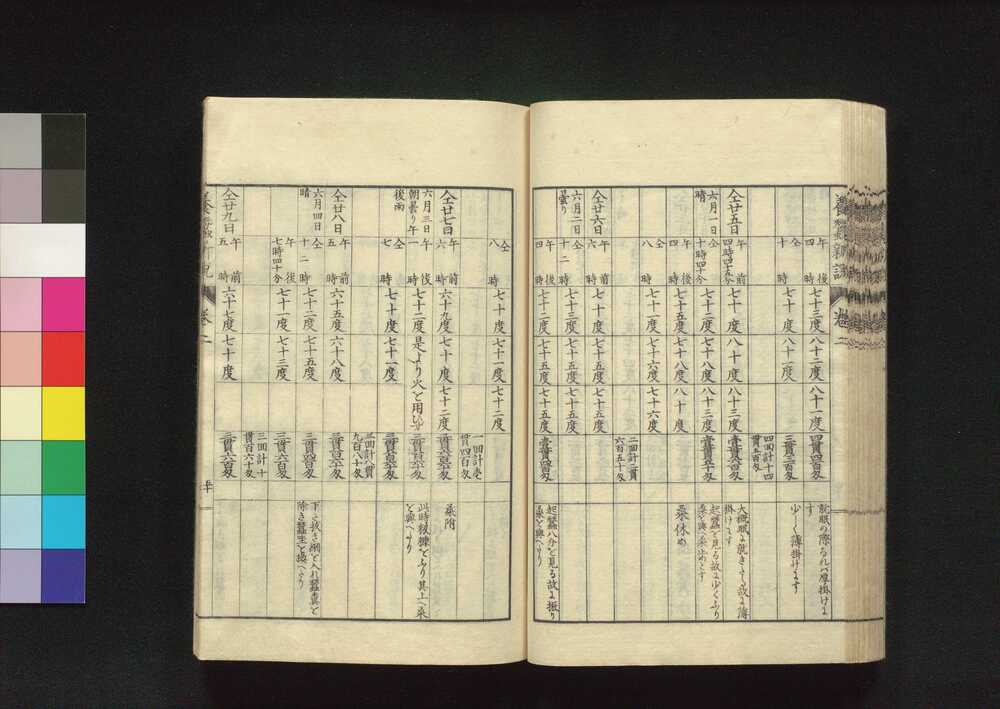 午後四時 七十三度 八十二度 八十一度 四貫四百匁 就眠の際なれバ厚掛けす
仝十時 七十度 八十二度 三貫二百匁 少しく薄掛けす
四回計十四貫五百匁
仝廿五日 午前四時四十五分 七十一度 八十度 八十三度 大概眠に就きたる故に薄掛けす
六月一日 晴 仝十時四十分 七十二度 七十八度 八十三度 起蠶を見る故に少くふり桑を與へ桑止めとす
午後四時 七十一度 七十八度 八十度 桑休め
仝八時 七十一度 七十六度 七十六度
二回計二貫六百五十匁
仝廿六日 午前六時 七十度 七十五度 七十五度
六月二日 曇り 十二時 七十三度 七十五度 七十五度
午後四時 七十二度 七十五度 七十五度 壹貫四百匁 起蠶八分を見る故に振り桑を與へたり
養蠶新説 卷二
仝八時 七十度 七十一度 七十二度
一回計壱貫四百匁
仝廿七日 午前六時 六十九度 七十度 七十二度 桑附
六月三日 朝曇り午後雨 午後一時 七十二度 是より火を用ひず 此時籾糠をふり其上へ桑を與へたり
仝七時 七十度 七十一度
三回計八貫九百八十匁
仝廿八日 午前五時 六十五度 六十八度
六月四日 晴 仝十二時 七十二度 七十五度 三貫四百匁 下に拔き網を入れ蠶糞を除き蠶座を換へたり
午後七時四十分 七十一度 七十三度 三貫六百匁
三回計十貫百六十匁
仝廿九日 午前五時 六十七度 七十度 三貫六百匁